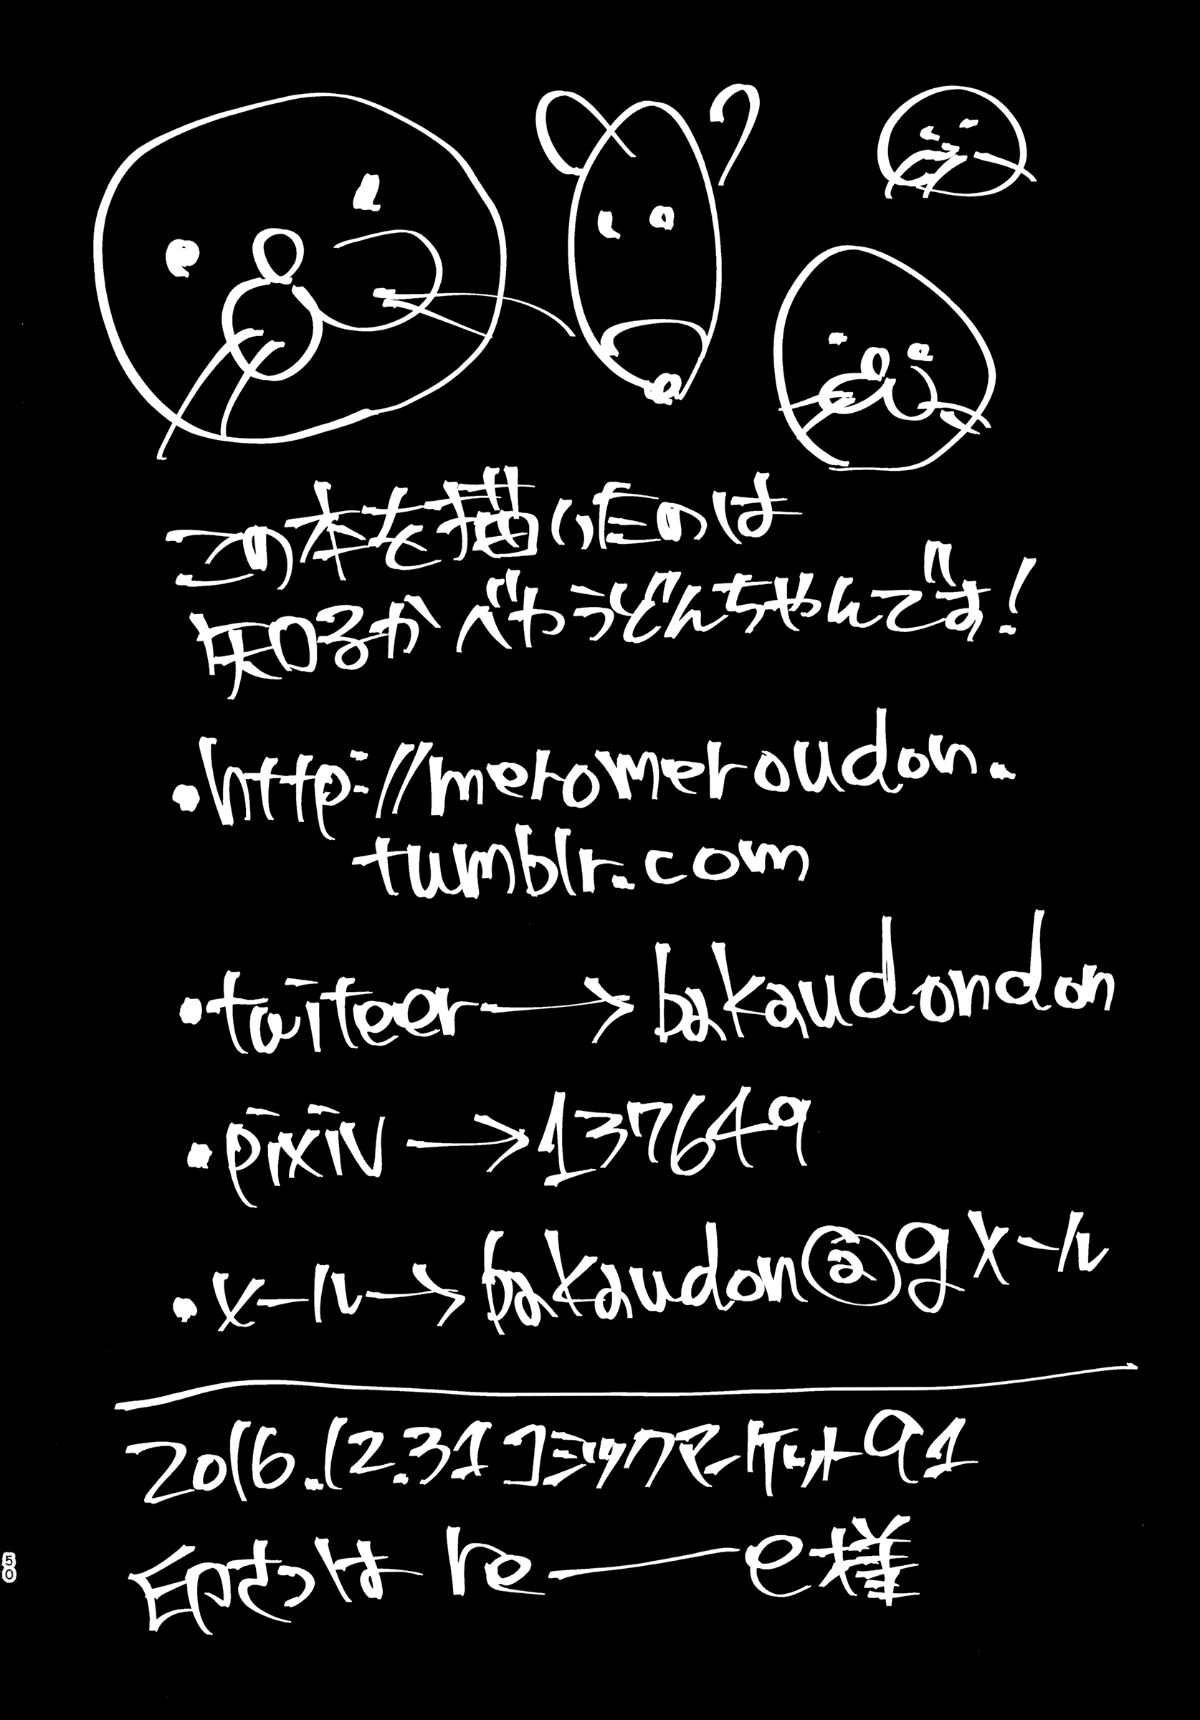 この本を描いたのは
知るかべやうどんちゃんです!
・http://meromeroudon.
tumblr.com
・twiteer→bakaudondon
・pixiv→137649
・メール→bakaudon@gメール
2016.12.31コミックマーケット91
印さつは re──e様
50